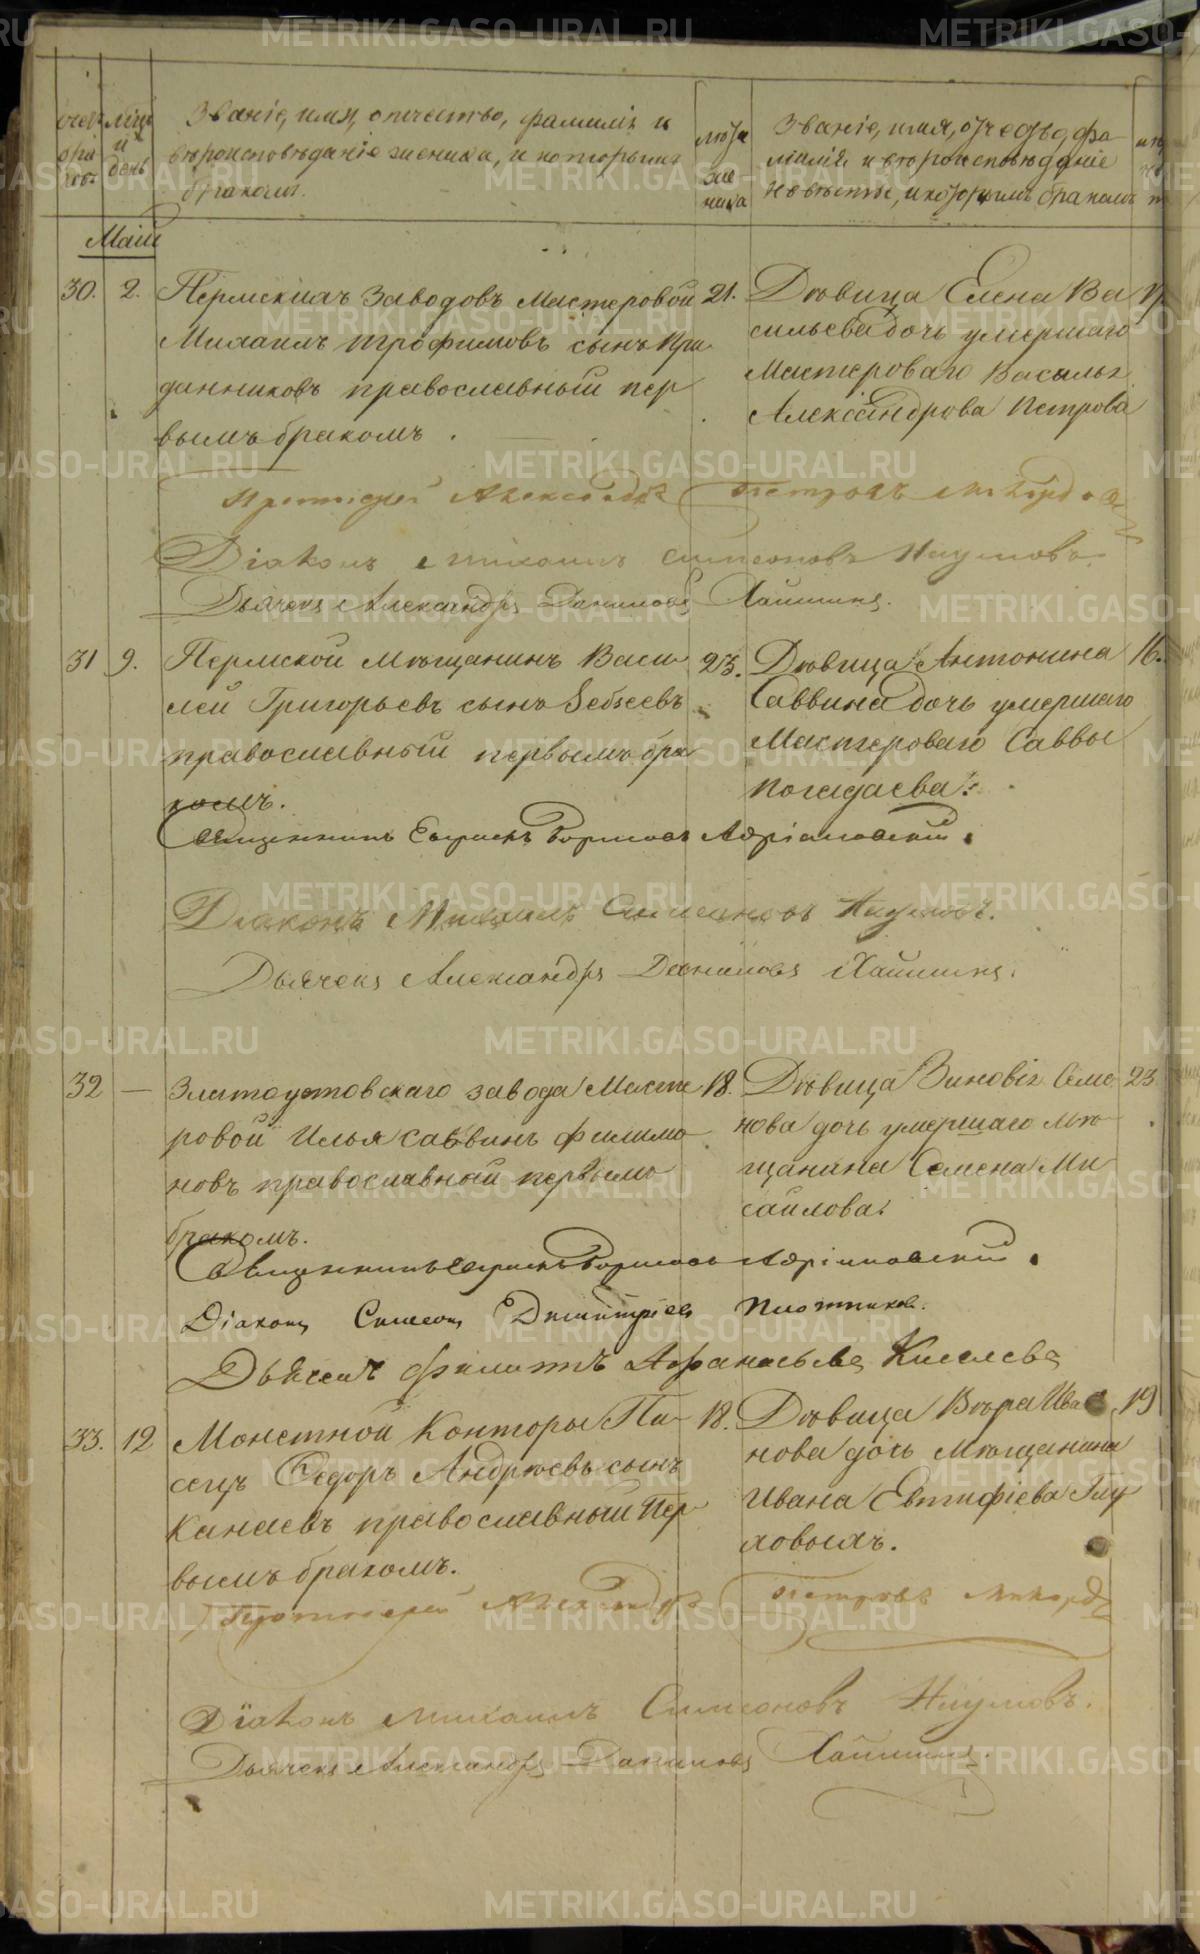 Звание, имя, отчество, фамилия и
вѣроисповѣдание жениха, и которымъ
бракомъ.
Лѣта
же
ниха
Звание, имя, отчество, фа
милия и вѣроисповѣдание
невѣсты, и которымъ бракомъ
мѣсяцъ
и
день
Маій
30. 2. Пермскихъ заводовъ Мастеровой 21.
Михаилъ Трофимовъ сынъ При
данниковъ православный пер
вымъ бракомъ.
Дѣвица Елена Ва
сильева дочь умершаго
Мастероваго Василья
Александрова Петрова
Протоіерей Александръ Петровъ
Діаконъ Михаилъ Симеоновъ Наумовъ
Дьячекъ Александръ Даниловъ Хаминъ.
31 9. Пермской Мѣщанинъ Васи 23.
лей Григорьевъ сынъ
православный первымъ бра
комъ.
Дѣвица Антонина 16.
Саввина дочь умершаго
Мастероваго Саввы
Погадаева.
Священникъ Борисовъ Адріановскій.
Діаконъ Михаилъ Симеоновъ Наумовъ.
Дьячекъ Александръ Даниловъ Хаминъ.
32 — Златоустовскаго завода Масте 18.
ровой Илья Саввинъ Филимо
новъ православный первымъ
бракомъ.
Дѣвица Зиновія Семе 23
нова дочь умершаго Мѣ
щанина Семена Ми
саилова.
Священникъ Борисовъ Адріановскій.
Діаконъ Симеонъ Димитріевъ Плотниковъ.
Дьячекъ Филиппъ Афанасьевъ Киселевъ
33. 12 Монетной Конторы Пи 18.
сецъ Ѳедоръ Андрѣевъ сынъ
Канаевъ православный Пер
вымъ бракомъ.
Дѣвица Вѣра Ива 19
нова дочь Мѣщанина
Ивана Евтифіева Глу
ховыхъ.
Протоіерей Александръ Петровъ
Діаконъ Михаилъ Симеоновъ Наумовъ.
Дьячекъ Александръ Даниловъ Хаминъ.
METRIKI.GASO-URAL.RU